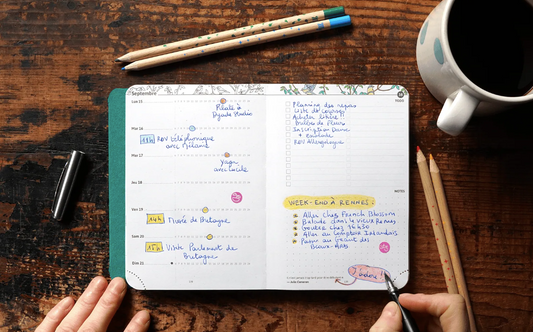 Septembre
Lun 15
Pilate à
Dyade Studio
Mar 16
11h RDV téléphonique
avec Mélanie
Mer 17
Yoga
avec Lucile
Jeu 18
Ven 19
14h Musée de Bretagne
Sam 20
15h Visite Parlement de
Bretagne
Dim 21
TODO
Planning des repas
Liste de courses
Acheter
bulbes de fleurs
Inscription Danse
RDV Allergologue
NOTES
WEEK-END À RENNES :
Aller chez French Blossom
Balade dans le vieux Rennes
Goûter chez
Aller au Comptoir Irlandais
Passer au
Beaux-Arts
J'adore